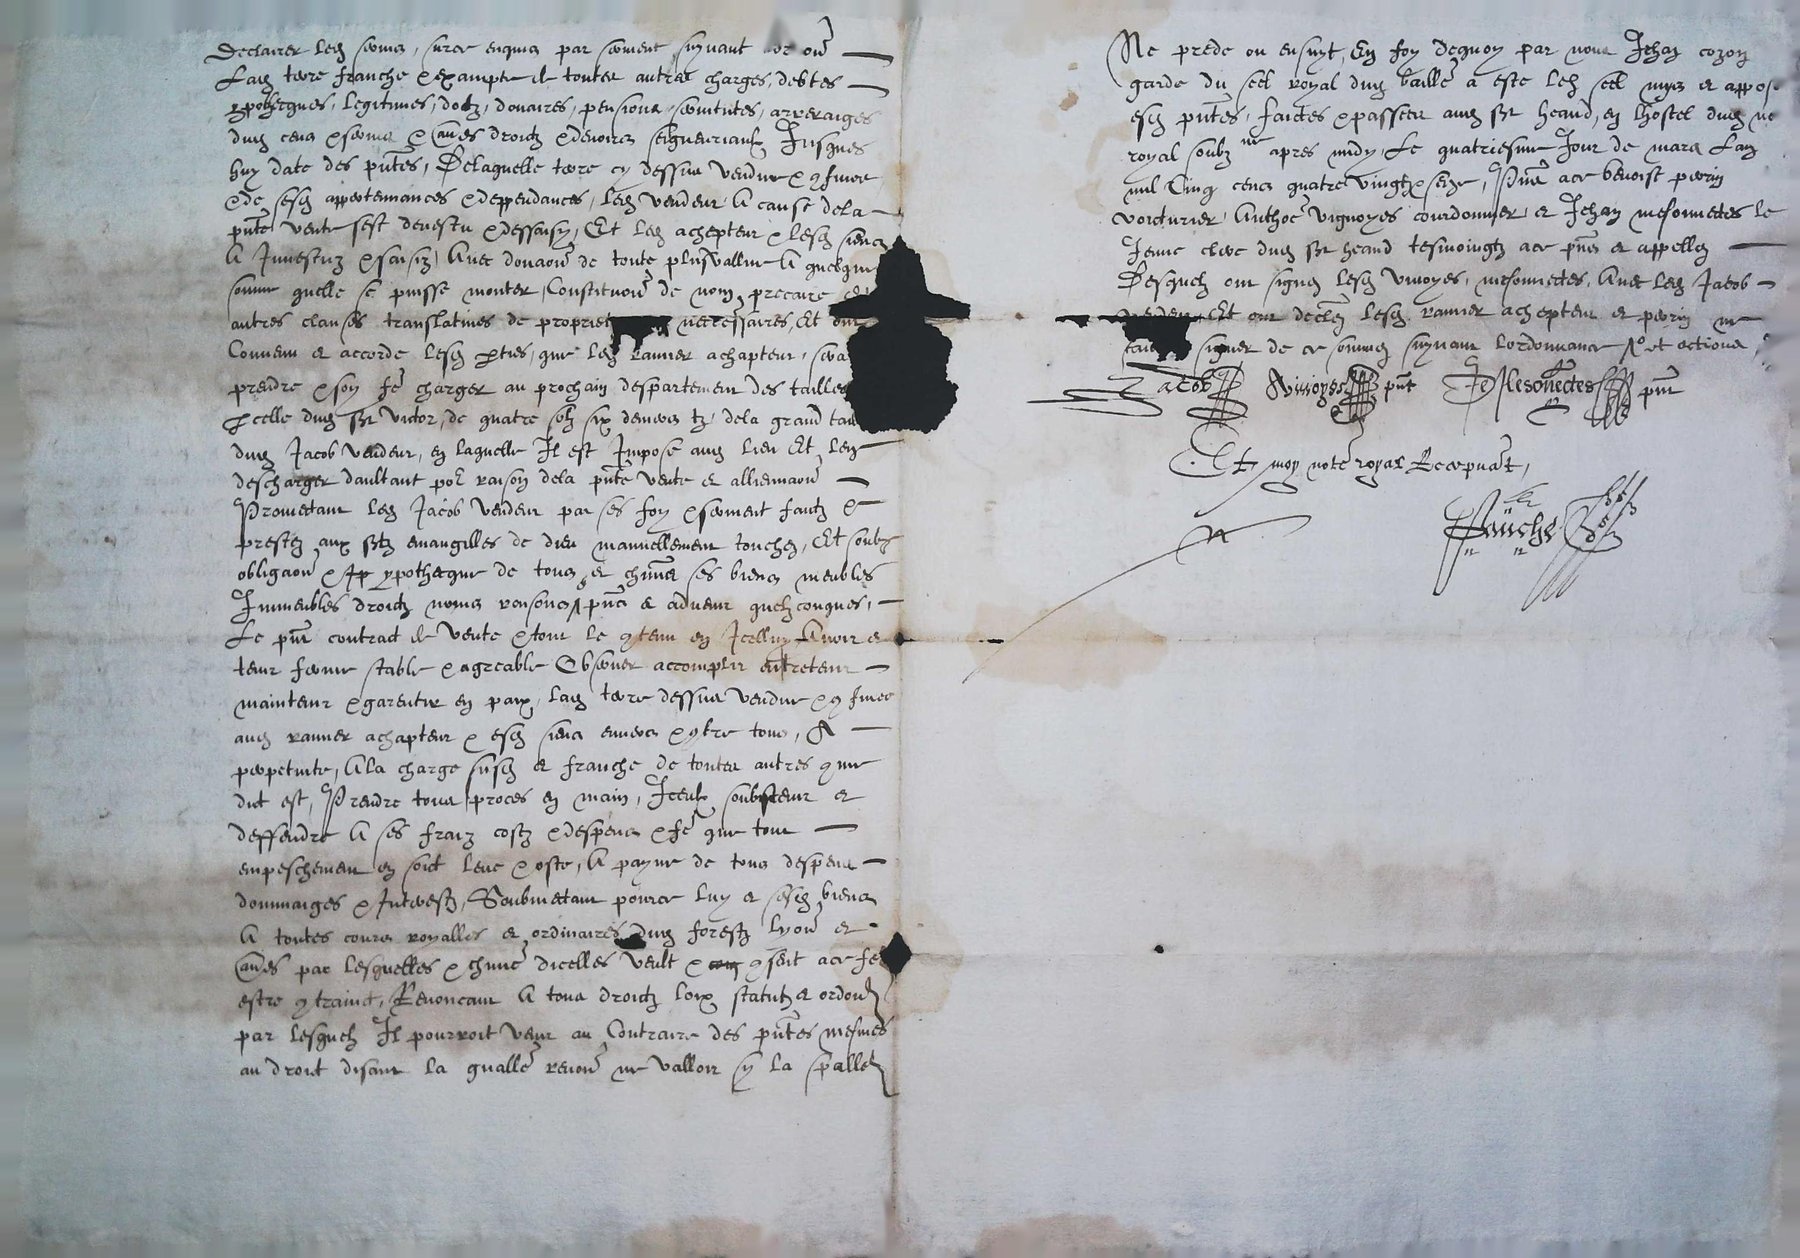 declairer led serviz, surce enquis par serment suyvant
Lad terre franche & exampte de toutes autres charges, debtes
ypotecques, legitimes, dotz, douaires, pensions, servitutes, arreraiges
dud cens & servis & aues droictz & devoirs seigneuriaulx Jusques
huy date des pntes, De laquelle terre cy dessus vendue & gfinee
& de sesd appertenances & deppendances, led vendeur A cause de la
pnte vente sest devestu & dessaisy, Et led achepteur & lesd siens
A Jnvestuz & saisiz, Avec donaon de toute plusvallue A quelque
somme quelle se puisse monter, Constituon de nom precaire et
autres clauses translatives de propriet necessaires, Et ont
Convenu et accorde lesd pties, que led vanier achapteur, sera
prendre & soy fe charger au prochain despartement des tailles
pcelle dud St victor, de quatre solz six deniers tz, de la grand
dud Jacob vendeur, en laquelle Il est Jmpose aud lieu Et led
descharger daultant por raison de la pnte vente et allienaon
Promectant led Jacob vendeur par ses foy & serment faictz &
prestez aux Stz evangilles de dieu manuellement touchez, Et soubz
obligaon & ypothecque de tous et chuns ses biens meubles
Jmmeubles droictz noms raisons pns et advenir quelzconques,
Le pnt contract de vente & tout le gtenu en Jcelluy Avoir et
tenir ferme stable & agreable Observer accomplir entretenir
maintenir & garentir en paix, lad terre dessus vendue & gfinee
aud vanier achapteur & esd siens envers & gtre tous, A
perpetuite, A la charge susd et franche de toutes autres gme
dict est, Prendre tous proces en main, Jceulx soubstenir et
deffendre A ses fraiz costz & despens & fe que tout
empeschement en soict leve & oste, A payne de tous despens
dommaiges & Jnterestz, Soubmectant pource luy et sesd biens
A toutes cours royalles et ordinaires dud forestz lyon et
aues par lesquelles & chune dicelles veult & gsent a ce fe
estre gtrainct, Renoncant A tous droictz loix statutz et ordon
par lesquelz Il pourroit venir au Contraire des pntes mesmes
au droict disant la gnalle renon ne valloir sy la spalle
Ne precede ou ensuyt, En foy dequoy par nous Jehan cozon
garde du seel royal dud baille a este led seel mys et appose
esd pntes, faictes & passees aud St heand, en lhostel dud
royal soubz ne apres midy, Le quatriesme Jour de mars Lan
mil Cinq cens quatre vingtz seze, Pns ace benoist perrin
voicturier, Anthoe vignoyes courdonnier, et Jehan mesonnectes le
Jeune clerc dud St heand tesmoingtz ace pns et appellez
Desquelz ont signez lesd vinoyes, mesonnectes, Avec led Jacob
Et ont declere lesd vannier achepteur et perrin ne
signer de ce sommez suyvant lordonnance
Jacob Avinoyes pnt J Mesonectes pnt
Et moy notre royal Recepvant,